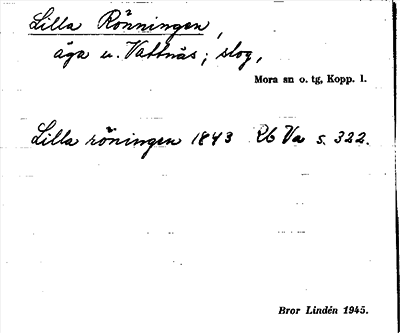 Lilla Rönningen,
äga u. Vattnäs; slog,
Mora sn o. tg, Kopp. l.
Lilla röningen 1843 Rb Va s. 322.
Bror Lindén 1945.